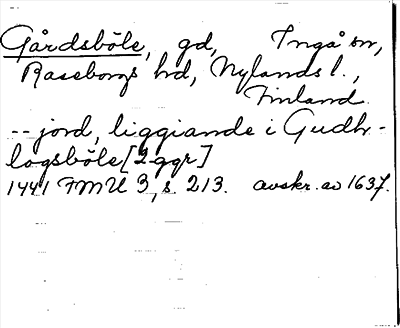 Gårdsböle, gd, Ingå sn,
Raseborgs hd, Nylands l.,
Finland.
-- jord, liggiande i Gudh-
logsböle [2 ggr]
1441 FMU 3, s. 213. avskr. av 1637.